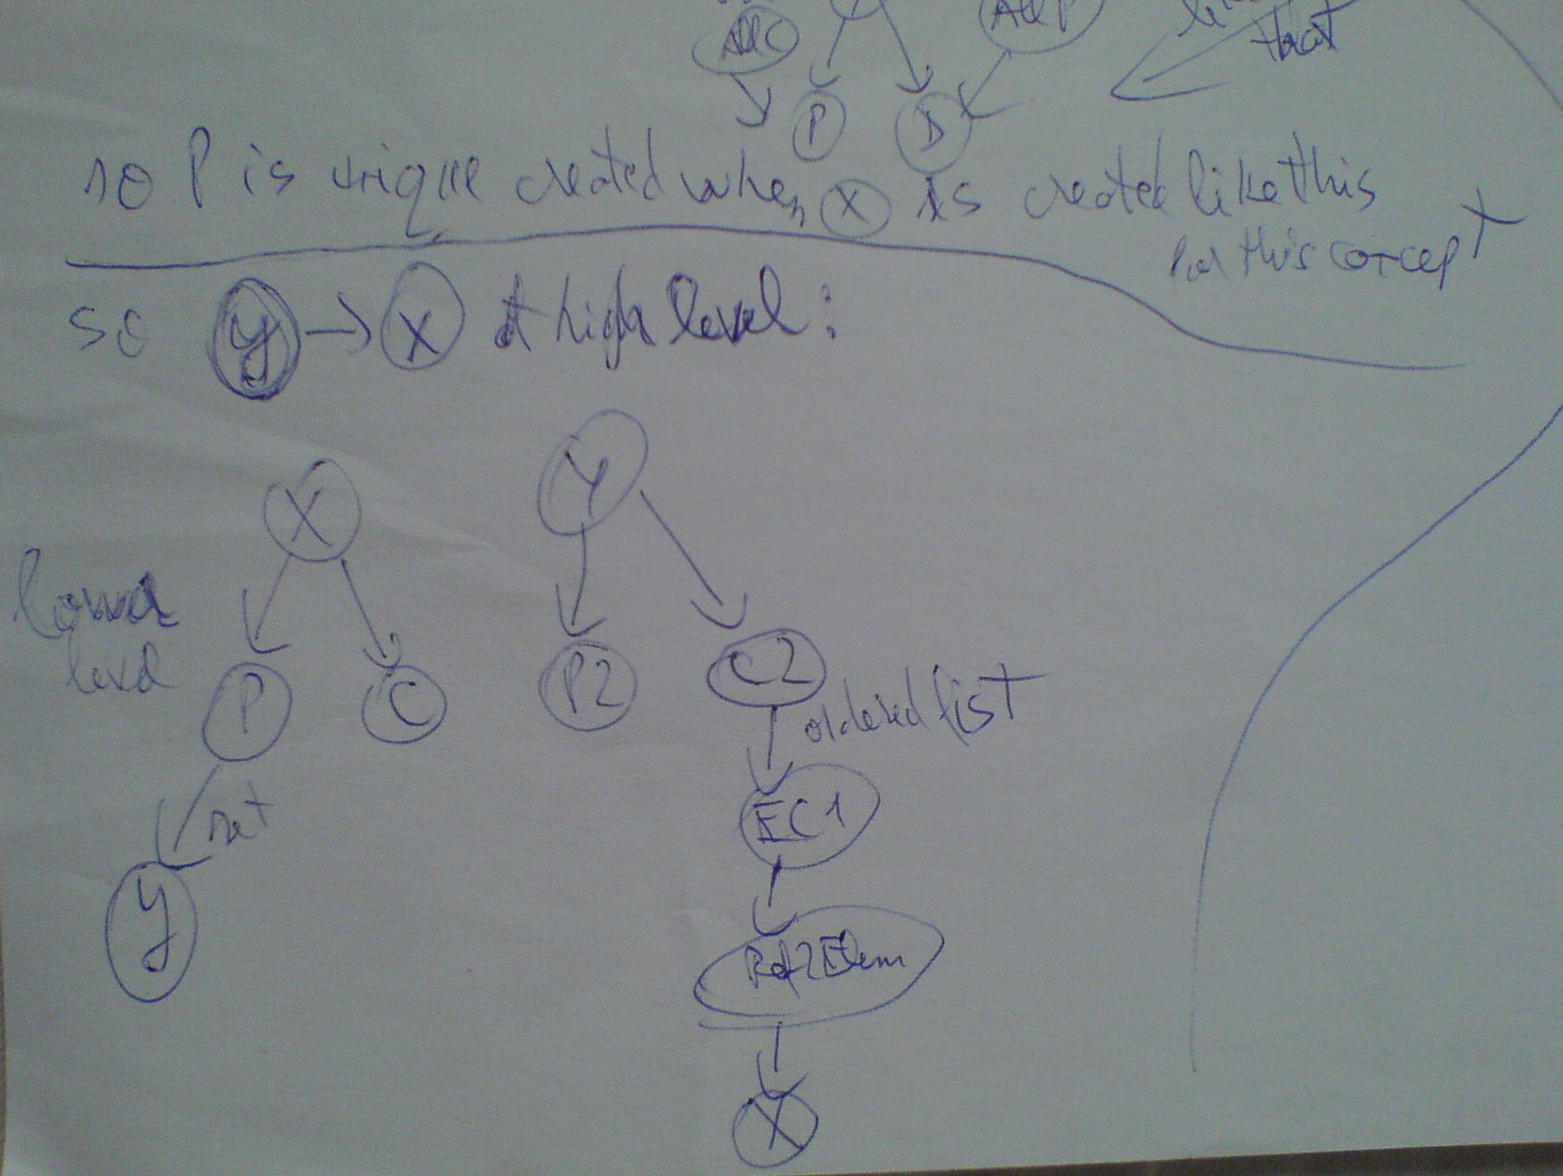 that
P D
so P is unique created when X is created like this
for this concept
so y → X at high level:
X Y
lower
level
P C P2 C2
ordered list
set
EC1
y
Ref2Elem
X